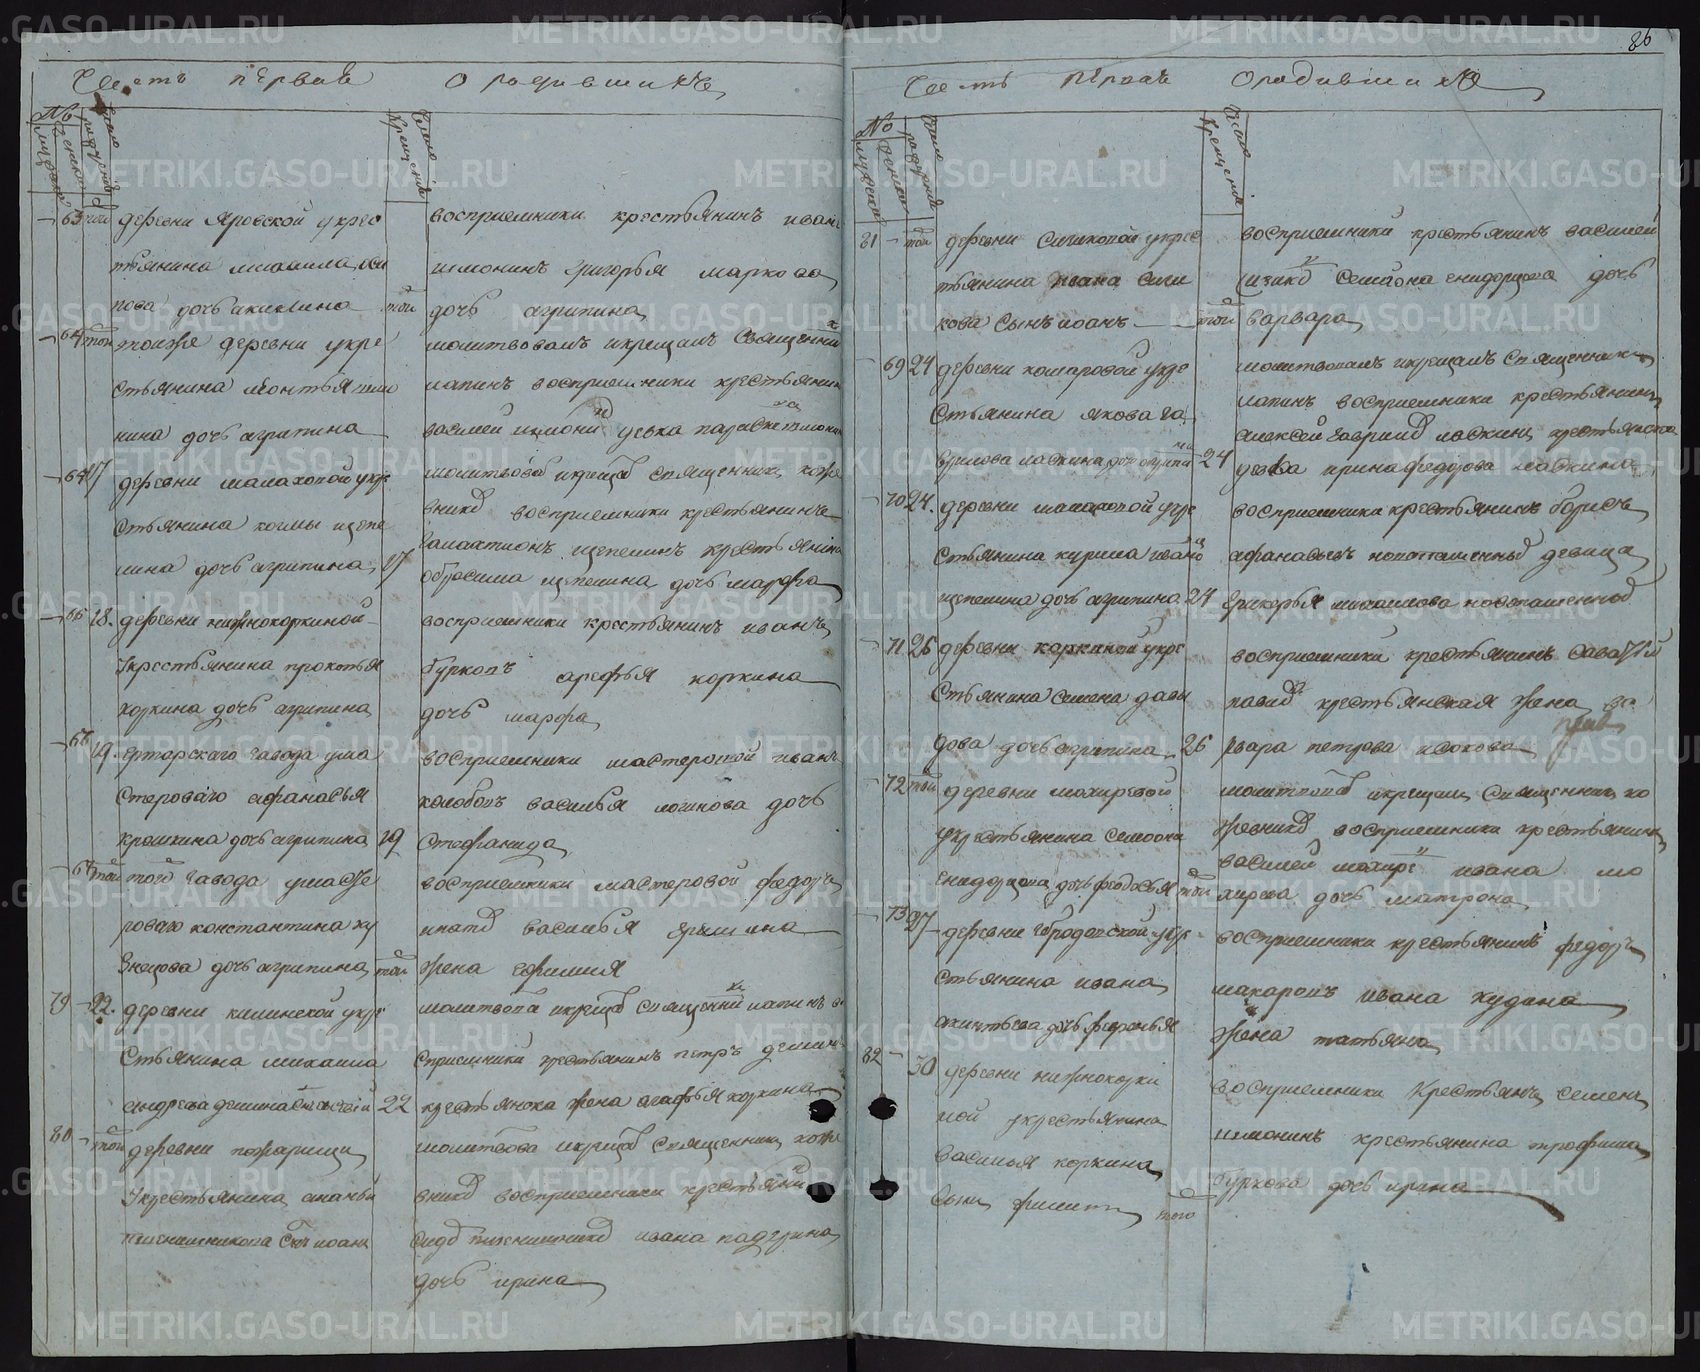 86
Часть первая о родившихся
№
мужеска
женска
число рождения
число крещения
63 той деревни Яровской укрес
тьянина михаила оси
пова дочь акилина той
восприемники крестьянинъ иванъ
шмонинъ григорья маркова
дочь агрипина
64 той тоиже деревни укре
стьянина леонтья шмо
нина дочь агрипина
молитвовалъ икрещалъ священникъ
лапинъ восприемники крестьянинъ
василей шмонинъ девка параскева шмонина
65 17 деревни малаховой укре
стьянина козмы щепе
лина дочь агрипина 17
молитвова икреща священникъ коже
вниковъ восприемники крестьянинъ
галактионъ щепелинъ крестьянина
абросима щепелина дочь марфа
66 18. деревни нижнокоркиной
укрестьянина прокопья
коркина дочь агрипина
восприемники крестьянинъ иванъ
бурковъ арефья коркина
дочь марфа
67 19. ертарскаго завода ума
стероваго афанасья
крошкина дочь агрипина 19
восприемники мастеровой иванъ
колобовъ василья логинова дочь
стефанида
68 той того завода умасте
роваго константина ку
знецова дочь агрипина той
восприемники мастеровой федоръ
ипатовъ василья ершина
жена ефимия
79 22. деревни килинской укре
стьянина михаила
андреева демина сынъ 22
молитвова икреща священникъ лапинъ во
сприемники крестьянинъ петръ деминъ
крестьянска жена агафья коркина
80 той деревни пожарищи
укрестьянина ананьи
пшенишникова сынъ иоанъ
молитвова икреща священникъ коже
вниковъ восприемники крестьянинъ
пшенишниковъ ивана падерина
дочь ирина
Часть первая о родившихся
№
мужеска
женска
число рождения
число крещения
81 той деревни сичиковой укрес
тьянина ивана сичи
кова сынъ иоанъ той
восприемники крестьянинъ василей
семиона снидорцова дочь
варвара
69 24 деревни комаровой укре
стьянина якова га
врилова ласкина дочь 24
молитвовалъ икрещалъ священникъ
лапинъ восприемники крестьянинъ
алексей гавриловъ ласкинъ крестьянска
девка ирина федорова ласкина
70 24. деревни малаховой укре
стьянина кирила ивано
щепелина дочь агрипина 24
восприемники крестьянинъ борисъ
афанасьевъ новопашенной девица
григорья михаилова новопашенной
71 26 деревни коркиной укре
стьянина семена давы
дова дочь агрипина 26
восприемники крестьянинъ саватий
крестьянская жена ва
рвара петрова исокова
72 той деревни мохиревой
укрестьянина семиона
снидорцова дочь феодосья той
молитвова икрещалъ священникъ ко
жевниковъ восприемники крестьянинъ
василей мохиревъ ивана мо
хирева дочь матрона
73 27 деревни городовской укре
стьянина ивана
акинтьева дочь февронья
восприемники крестьянинъ федоръ
макаровъ ивана худана
жена татьяна
82 30 деревни нижнокорки
ной укрестьянина
василья коркина
сынъ филипъ того
восприемники крестьянъ семенъ
шмонинъ крестьянина трофима
буркова дочь ирина